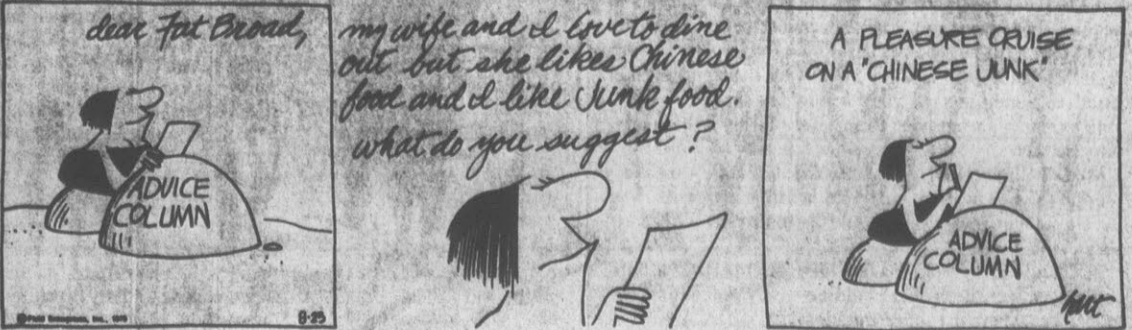 dear Fat Broad,
ADVICE
COLUMN
8-25
my wife and I love to dine
out but she likes Chinese
food and I like Junk food.
what do you suggest?
A PLEASURE CRUISE
ON A "CHINESE JUNK"
ADVICE
COLUMN
hart